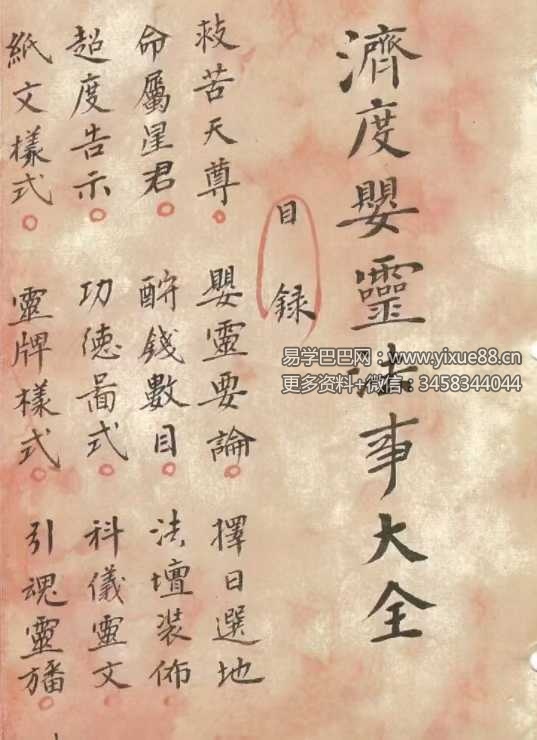 濟度嬰靈法事大全
目錄
救苦天尊 嬰靈要論 擇日選地
命屬星君 酧錢數目 法壇裝佈
超度告示 功德啚式 科儀靈文
紙文樣式 靈牌樣式 引魂靈旛
易学巴巴网：www.yixue88.cn
更多资料+微信：3458344044